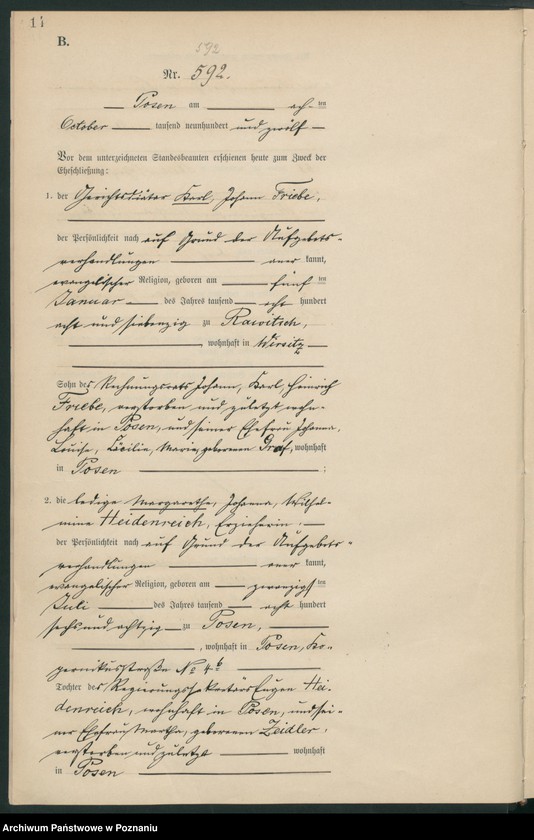 11
B.
592
Nr. 592.
Posen am ach ten
October tausend neunhundert und zwölf
Vor dem unterzeichneten Standesbeamten erschienen heute zum Zweck der
Eheschließung:
1. der Gerichtsdiätar Karl, Johann Friebe,
der Persönlichkeit nach auf Grund der Aufgebots-
verhandlungen aner kannt,
evangelischer Religion, geboren am fünf ten
Januar des Jahres tausend acht hundert
acht und siebenzig zu Rawitsch,
, wohnhaft in Wirsitz
Sohn des Rechnungsrats Johann, Karl, Heinrich
Friebe, verstorben und zuletzt wohn-
haft in Posen, und seiner Ehefrau Johanna,
Louise, Cäcilie, Marie, geborenen Graf, wohnhaft
in Posen ;
2. die ledige Margarethe, Johanna, Wilhel-
mine Heidenreich, Erzieherin,
der Persönlichkeit nach auf Grund der Aufgebots-
verhandlungen aner kannt,
evangelischer Religion, geboren am zwanzigs ten
Juli des Jahres tausend acht hundert
sechs und achtzig zu Posen,
, wohnhaft in Posen, Ko-
pernikusstraße No 4b
Tochter des Regierungssekretärs Eugen Hei-
denreich, wohnhaft in Posen, und sei-
ner Ehefrau Martha, geborenen Zeidler,
verstorben und zuletzt wohnhaft
in Posen
Archiwum Państwowe w Poznaniu